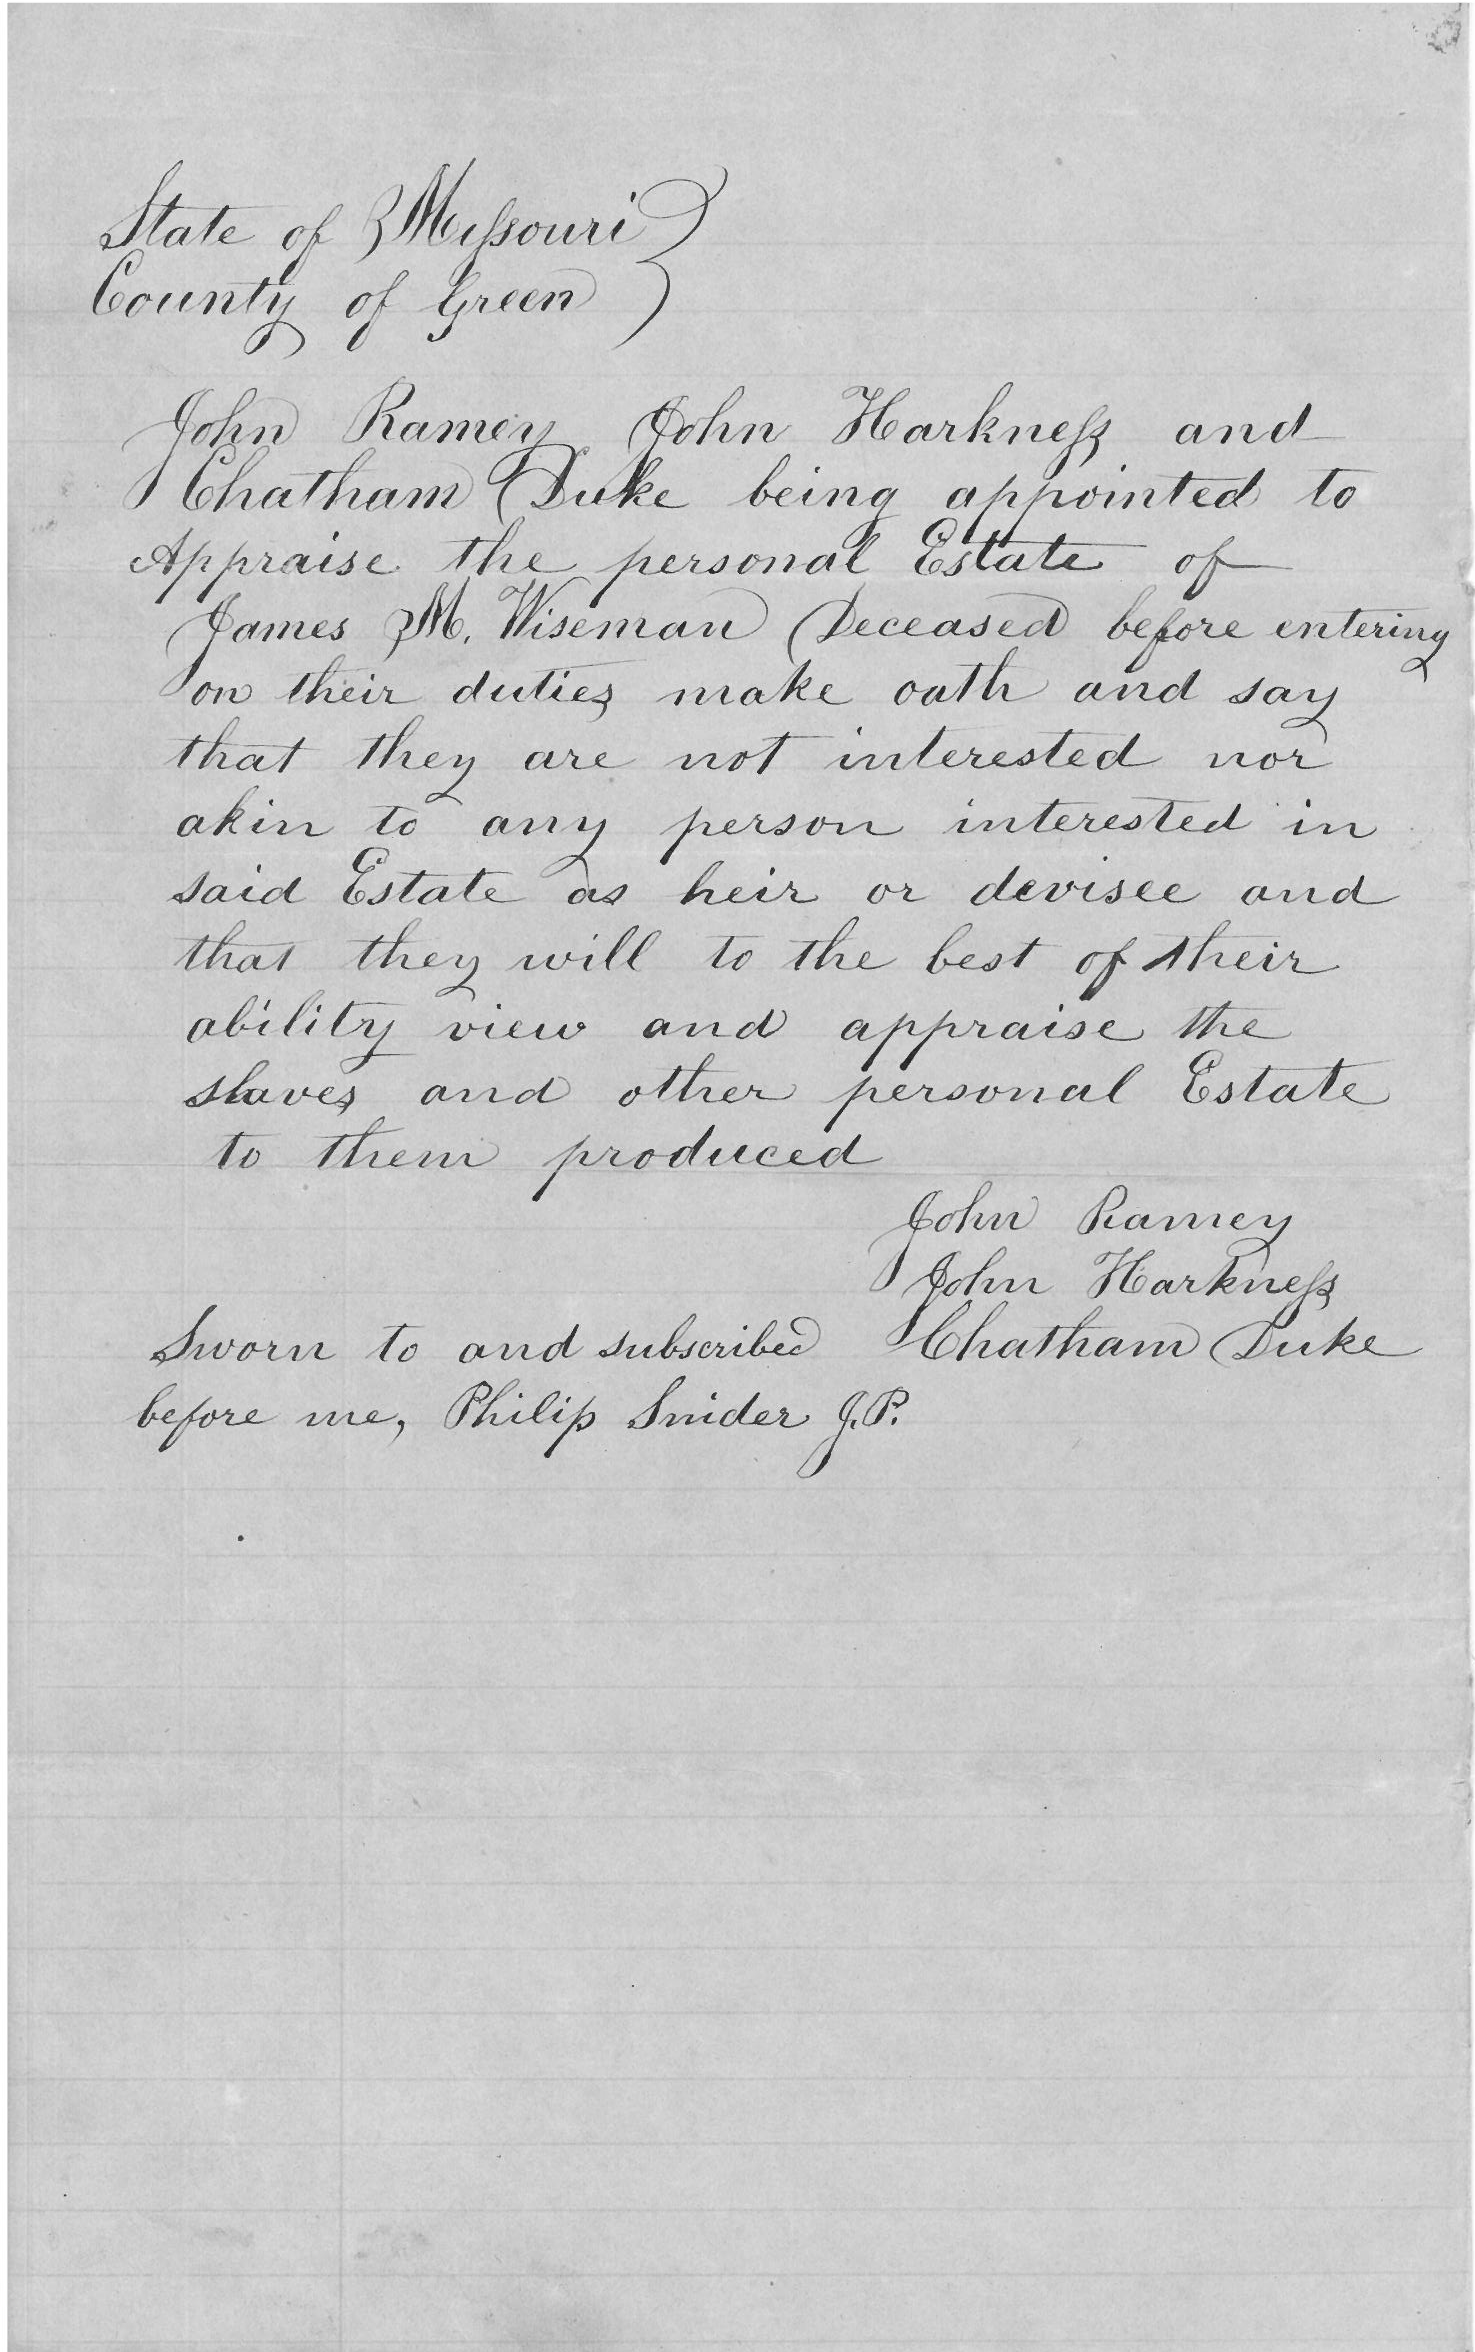 State of Missouri }
County of Green }
John Ramey John Harkness and
Chatham Duke being appointed to
Appraise the personal Estate of
James M. Wiseman Deceased before entering
on their duties make oath and say
that they are not interested nor
akin to any person interested in
said Estate as heir or devisee and
that they will to the best of their
ability view and appraise the
slaves and other personal Estate
to them produced
John Ramey
John Harkness
Sworn to and subscribed Chatham Duke
before me, Philip Snider J.P.